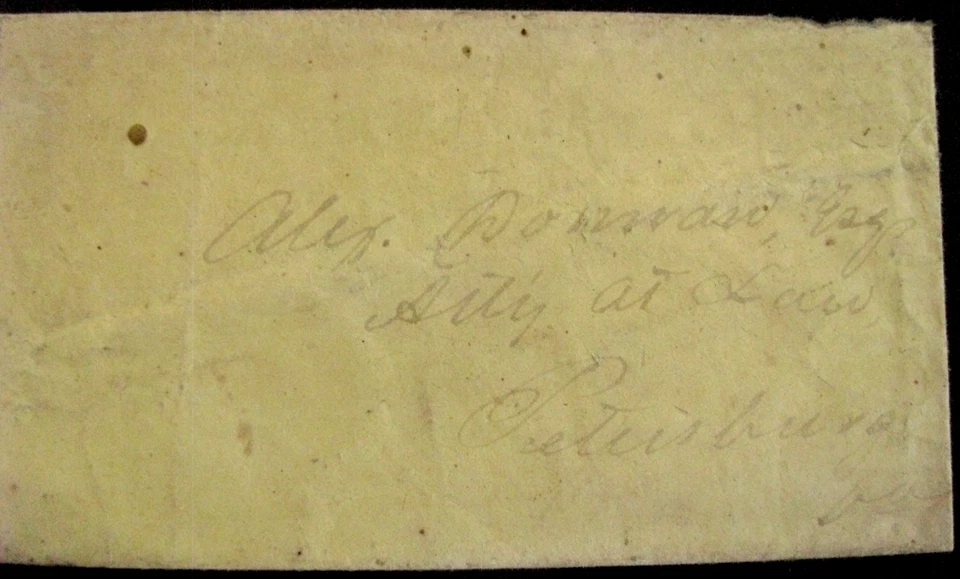 Alex. Donnan, Esq.
Att'y at Law
Petersburg
Va